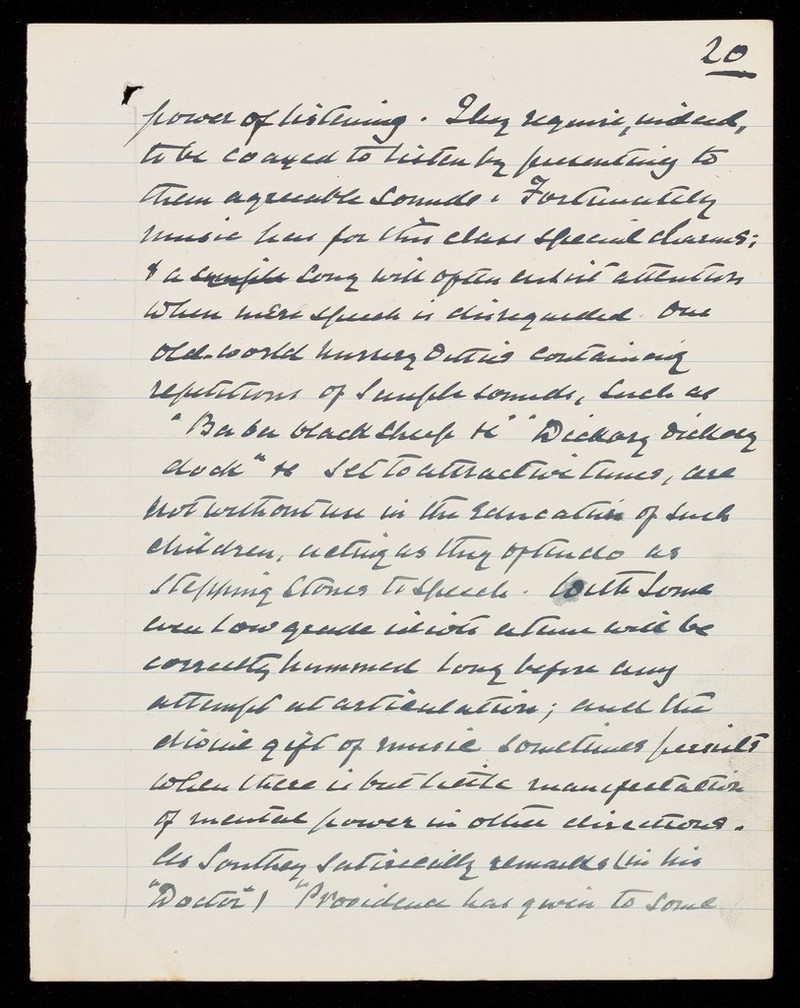 20
power of listening. They require, indeed,
to be coaxed to listen by presenting to
them agreeable sounds. Fortunately
music has for this class special charms;
& a simple song will often entist attention
when mere speech is disregarded. Our
old-world nursery ditties containing
repetitions of simple sounds, such as
"Ba ba black sheep &c" "Dickory dickory
dock" &c set to attractive tunes, are
not without use in the education of such
children, acting as they often do as
stepping stones to speech. With some
even low grade idiots a tune will be
correctly hummed long before any
attempt at articulation; and the
divine gift of music sometimes persists
when there is but little manifestation
of mental power in other directions.
As Southey satirically remarks (in his
"Doctor") "Providence has given to some